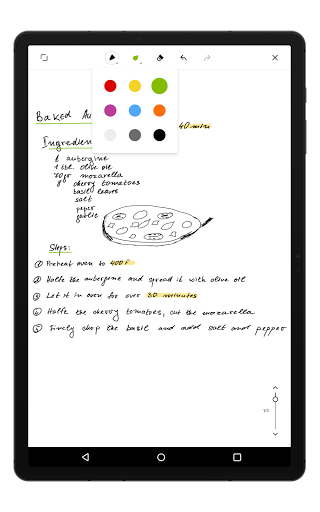 Baked Au 40 min
Ingredien
1 aubergine
1 tbl. olive oil
70gr mozarella
8 cherry tomatoes
basil leaves
salt
peper
garlic
Steps:
① Preheat oven to 400F
② Halfe the aubergine and spread it with olive oil
③ Let it in oven for over 30 minutes
④ Halfe the cherry tomatoes, cut the mozarella
⑤ Finely chop the basil and add salt and pepper